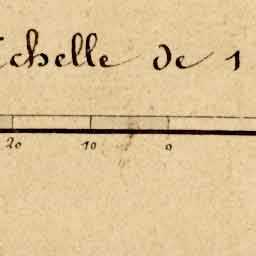 Echelle de 1
20 10 0